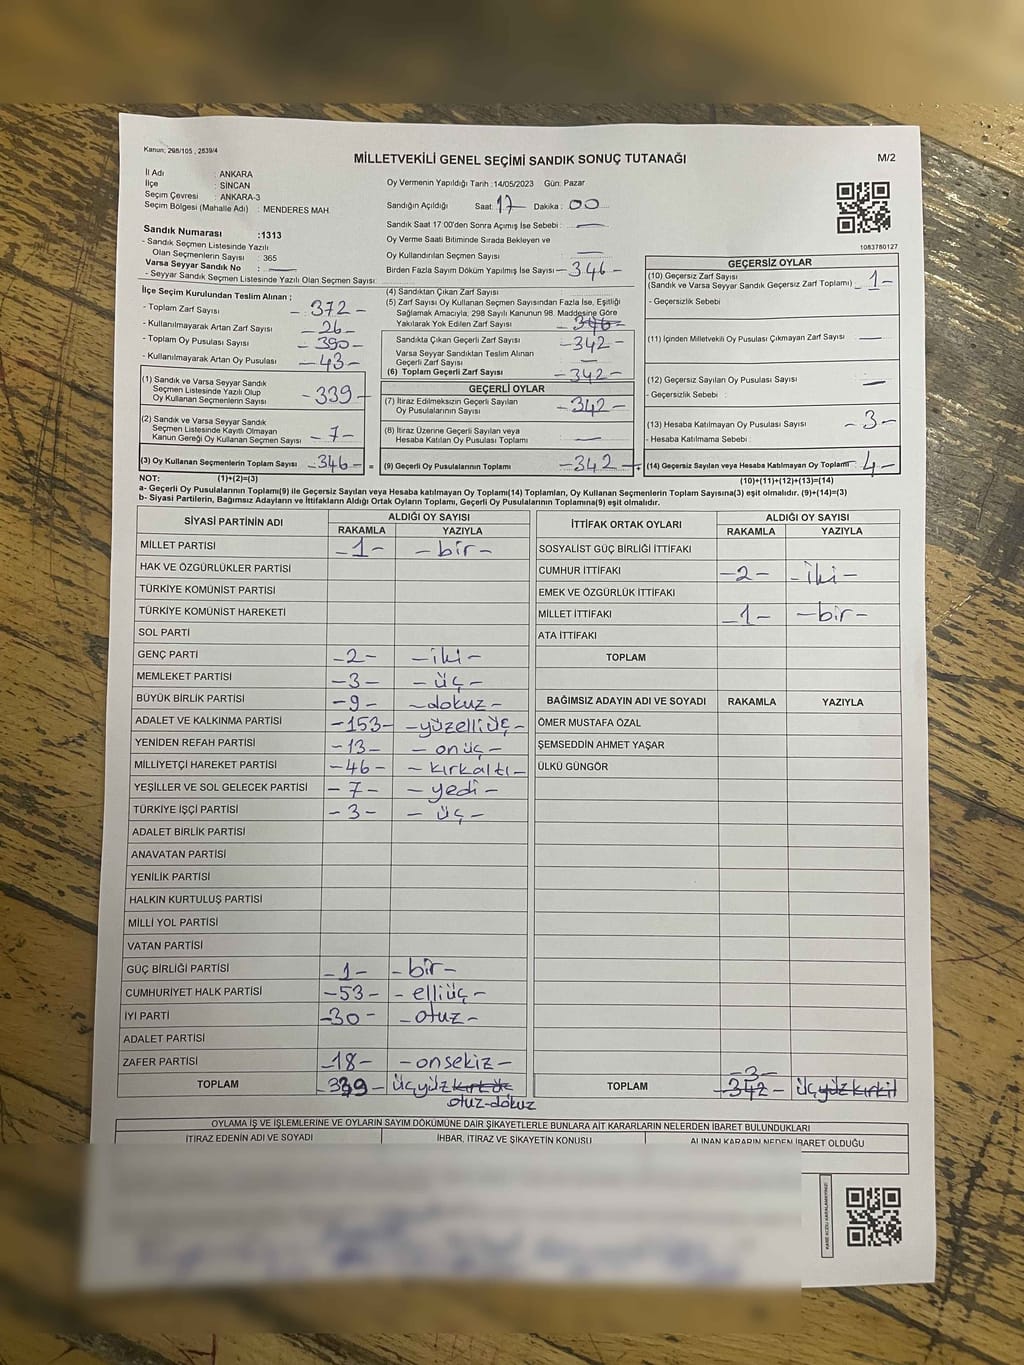 Kanun; 298/105 , 2839/4
MİLLETVEKİLİ GENEL SEÇİMİ SANDIK SONUÇ TUTANAĞI
M/2
İl Adı : ANKARA
İlçe : SİNCAN
Seçim Çevresi : ANKARA-3
Seçim Bölgesi (Mahalle Adı) : MENDERES MAH.
Sandık Numarası :1313
- Sandık Seçmen Listesinde Yazılı
Olan Seçmenlerin Sayısı : 365
Varsa Seyyar Sandık No : —
- Seyyar Sandık Seçmen Listesinde Yazılı Olan Seçmen Sayısı
Oy Vermenin Yapıldığı Tarih :14/05/2023 Gün: Pazar
Sandığın Açıldığı Saat: 17 Dakika : 00
Sandık Saat 17:00'den Sonra Açımış İse Sebebi : —
Oy Verme Saati Bitiminde Sırada Bekleyen ve
Oy Kullandırılan Seçmen Sayısı —
Birden Fazla Sayım Döküm Yapılmış İse Sayısı
(4) Sandıktan Çıkan Zarf Sayısı -346-
(5) Zarf Sayısı Oy Kullanan Seçmen Sayısından Fazla İse, Eşitliği
Sağlamak Amacıyla, 298 Sayılı Kanunun 98. Maddesine Göre
Yakılarak Yok Edilen Zarf Sayısı -346-
1083780127
İlçe Seçim Kurulundan Teslim Alınan ;
- Toplam Zarf Sayısı - 372 -
- Kullanılmayarak Artan Zarf Sayısı - 26 -
- Toplam Oy Pusulası Sayısı - 390 -
- Kullanılmayarak Artan Oy Pusulası - 43 -
(1) Sandık ve Varsa Seyyar Sandık
Seçmen Listesinde Yazılı Olup
Oy Kullanan Seçmenlerin Sayısı - 339 -
(2) Sandık ve Varsa Seyyar Sandık
Seçmen Listesinde Kayıtlı Olmayan
Kanun Gereği Oy Kullanan Seçmen Sayısı - 7 -
(3) Oy Kullanan Seçmenlerin Toplam Sayısı -346- =
Sandıkta Çıkan Geçerli Zarf Sayısı -342-
Varsa Seyyar Sandıktan Teslim Alınan
Geçerli Zarf Sayısı —
(6) Toplam Geçerli Zarf Sayısı -342-
GEÇERLİ OYLAR
(7) İtiraz Edilmeksizin Geçerli Sayılan
Oy Pusulalarının Sayısı -342-
(8) İtiraz Üzerine Geçerli Sayılan veya
Hesaba Katılan Oy Pusulası Toplamı —
(9) Geçerli Oy Pusulalarının Toplamı -342- +
GEÇERSİZ OYLAR
(10) Geçersiz Zarf Sayısı
(Sandık ve Varsa Seyyar Sandık Geçersiz Zarf Toplamı) - 1 -
- Geçersizlik Sebebi
(11) İçinden Milletvekili Oy Pusulası Çıkmayan Zarf Sayısı —
(12) Geçersiz Sayılan Oy Pusulası Sayısı —
- Geçersizlik Sebebi :
(13) Hesaba Katılmayan Oy Pusulası Sayısı - 3 -
- Hesaba Katılmama Sebebi :
(14) Geçersiz Sayılan veya Hesaba Katılmayan Oy Toplamı - 4 -
NOT: (1)+(2)=(3) (10)+(11)+(12)+(13)=(14)
a- Geçerli Oy Pusulalarının Toplamı(9) ile Geçersiz Sayılan veya Hesaba katılmayan Oy Toplamı(14) Toplamları, Oy Kullanan Seçmenlerin Toplam Sayısına(3) eşit olmalıdır. (9)+(14)=(3)
b- Siyasi Partilerin, Bağımsız Adayların ve İttifakların Aldığı Ortak Oyların Toplamı, Geçerli Oy Pusulalarının Toplamına(9) eşit olmalıdır.
SİYASİ PARTİNİN ADI ALDIĞI OY SAYISI
RAKAMLA YAZIYLA
MİLLET PARTİSİ -1- - bir -
HAK VE ÖZGÜRLÜKLER PARTİSİ
TÜRKİYE KOMÜNİST PARTİSİ
TÜRKİYE KOMÜNİST HAREKETİ
SOL PARTİ
GENÇ PARTİ -2- - iki -
MEMLEKET PARTİSİ -3- - üç -
BÜYÜK BİRLİK PARTİSİ -9- - dokuz -
ADALET VE KALKINMA PARTİSİ -153- - yüzelliüç -
YENİDEN REFAH PARTİSİ -13- - onüç -
MİLLİYETÇİ HAREKET PARTİSİ -46- - kırkaltı -
YEŞİLLER VE SOL GELECEK PARTİSİ - 7 - - yedi -
TÜRKİYE İŞÇİ PARTİSİ - 3 - - üç -
ADALET BİRLİK PARTİSİ
ANAVATAN PARTİSİ
YENİLİK PARTİSİ
HALKIN KURTULUŞ PARTİSİ
MİLLİ YOL PARTİSİ
VATAN PARTİSİ
GÜÇ BİRLİĞİ PARTİSİ -1- - bir -
CUMHURİYET HALK PARTİSİ -53- - elliüç -
İYİ PARTİ -30- - otuz -
ADALET PARTİSİ
ZAFER PARTİSİ -18- - onsekiz -
TOPLAM -339- üçyüz
otuz-dokuz
İTTİFAK ORTAK OYLARI ALDIĞI OY SAYISI
RAKAMLA YAZIYLA
SOSYALİST GÜÇ BİRLİĞİ İTTİFAKI
CUMHUR İTTİFAKI -2- - iki -
EMEK VE ÖZGÜRLÜK İTTİFAKI
MİLLET İTTİFAKI -1- - bir -
ATA İTTİFAKI
TOPLAM
BAĞIMSIZ ADAYIN ADI VE SOYADI RAKAMLA YAZIYLA
ÖMER MUSTAFA ÖZAL
ŞEMSEDDİN AHMET YAŞAR
ÜLKÜ GÜNGÖR
-3-
TOPLAM -342- üçyüzkırkii
OYLAMA İŞ VE İŞLEMLERİNE VE OYLARIN SAYIM DÖKÜMÜNE DAİR ŞİKAYETLERLE BUNLARA AİT KARARLARIN NELERDEN İBARET BULUNDUKLARI
İTİRAZ EDENİN ADI VE SOYADI İHBAR, İTİRAZ VE ŞİKAYETİN KONUSU ALINAN KARARIN NEDEN İBARET OLDUĞU